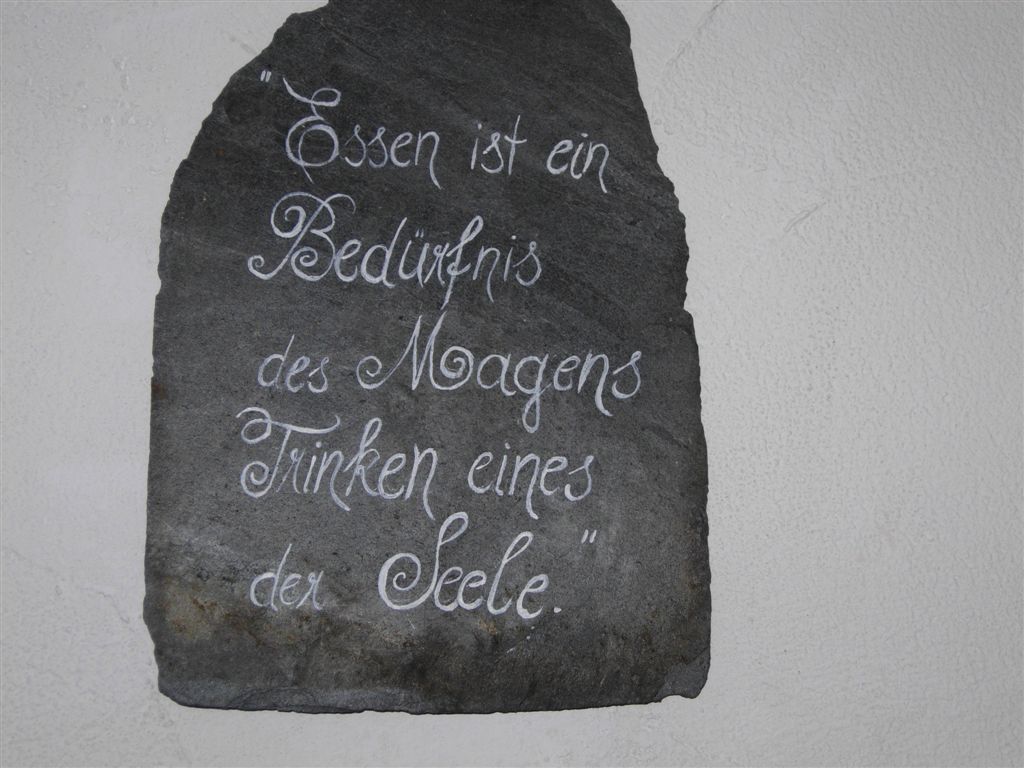 "Essen ist ein
Bedürfnis
des Magens
Trinken eines
der Seele."